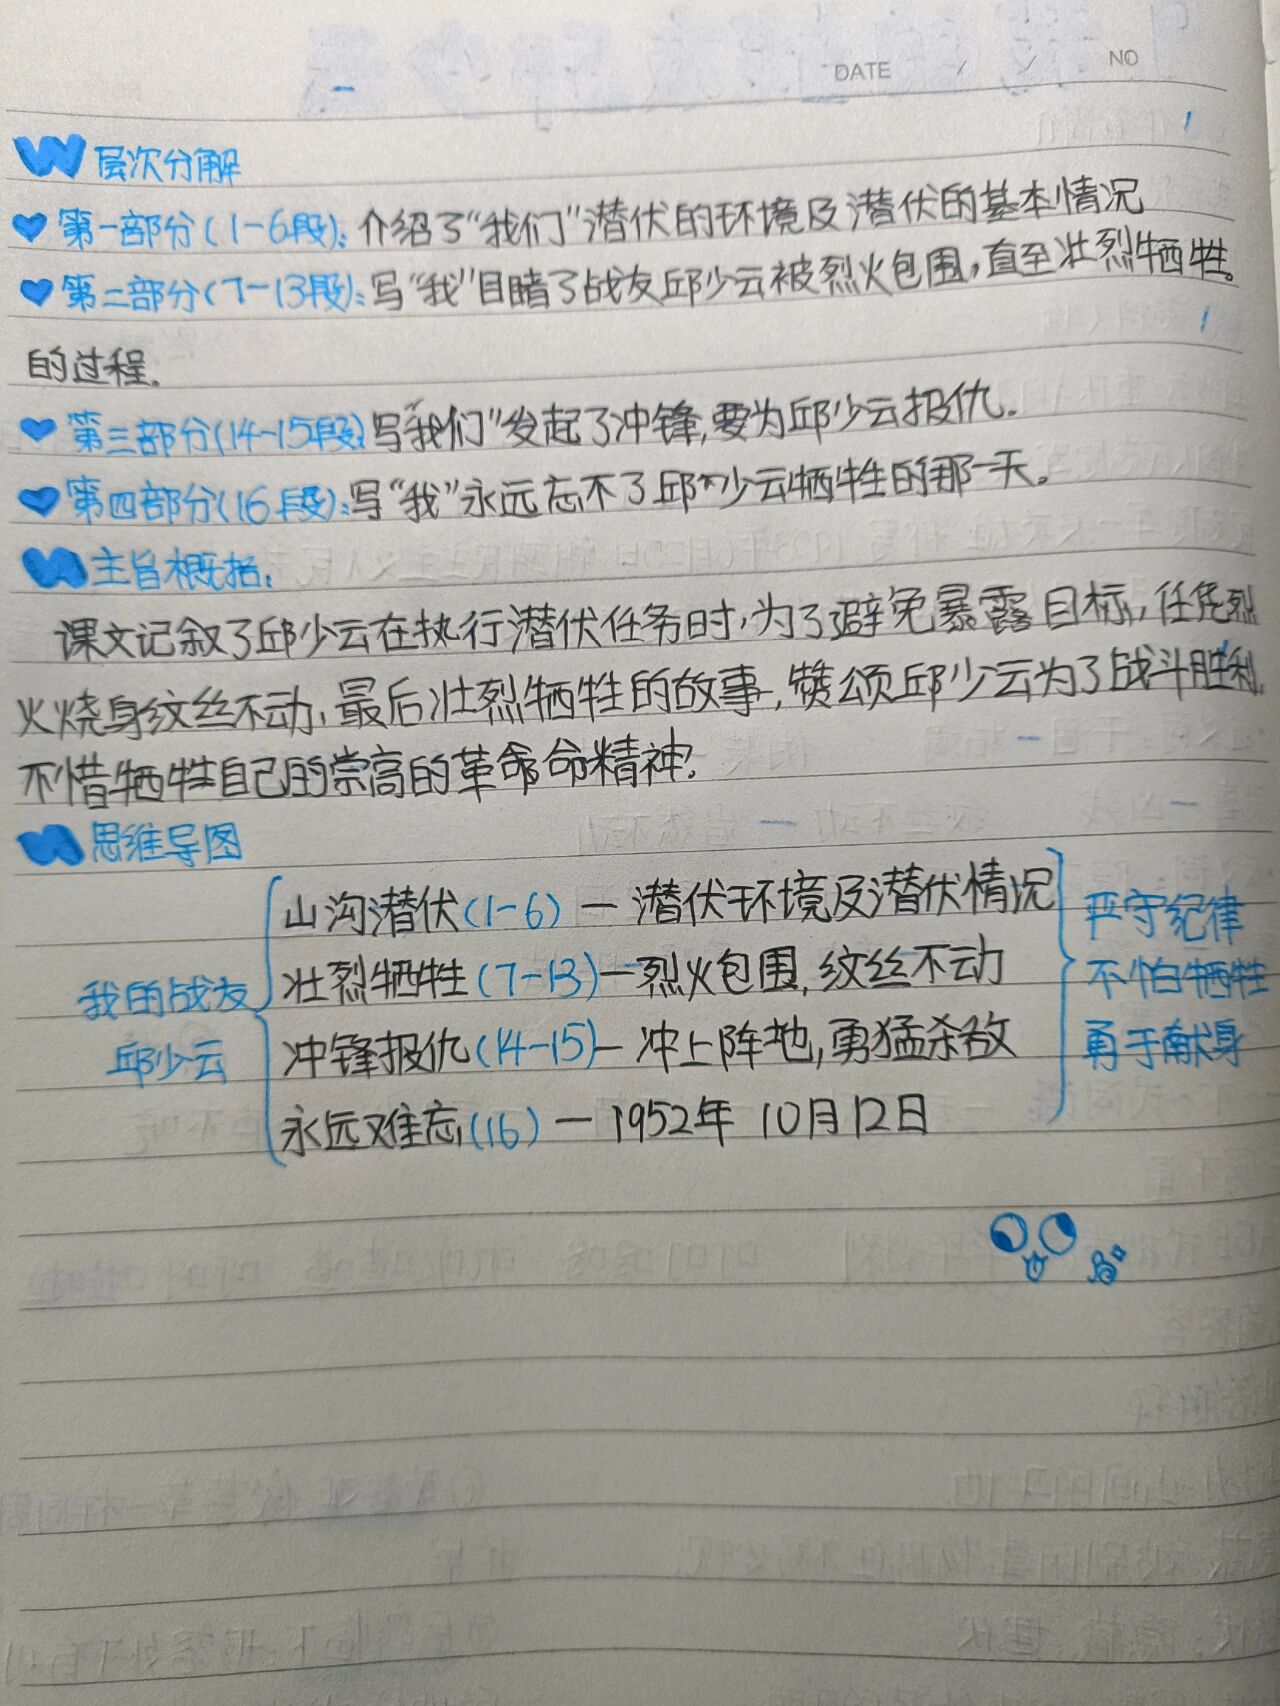 DATE / / NO
层次分解
第一部分(1-6段):介绍了“我们”潜伏的环境及潜伏的基本情况
第二部分(7-13段):写“我”目睹了战友邱少云被烈火包围,直至壮烈牺牲。
的过程。
第三部分(14-15段)写“我们”发起了冲锋,要为邱少云报仇.
第四部分(16段):写“我”永远忘不了邱少云牺牲的那一天.
主旨概括:
课文记叙了邱少云在执行潜伏任务时,为了避免暴露目标,任凭烈
火烧身纹丝不动,最后壮烈牺牲的故事,赞颂邱少云为了战斗胜利,
不惜牺牲自己的崇高的革命命精神.
思维导图
山沟潜伏(1-6) — 潜伏环境及潜伏情况
壮烈牺牲(7-13)—烈火包围,纹丝不动
冲锋报仇(14-15)— 冲上阵地,勇猛杀敌
永远难忘(16) — 1952年 10月12日
我的战友
邱少云
严守纪律
不怕牺牲
勇于献身